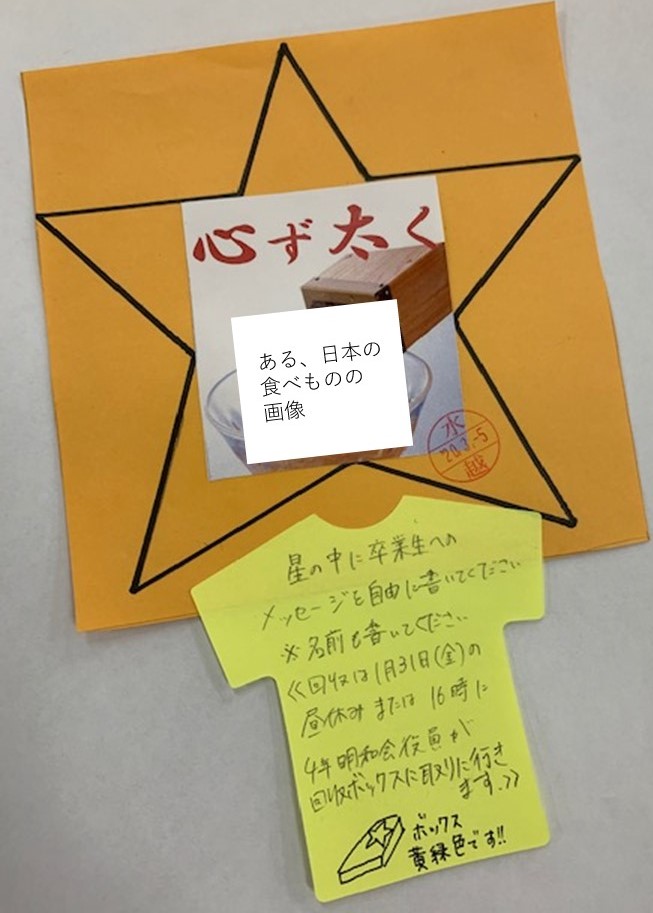 心ず太く
ある、日本の
食べものの
画像
水
20.3.-5
越
星の中に卒業生への
メッセージを自由に書いてください
※名前も書いてください
《回収は1月31日(金)の
昼休みまたは16時に
4年明和会役員が
回収ボックスに取りに行き
ます。》
ボックス
黄緑色です!!